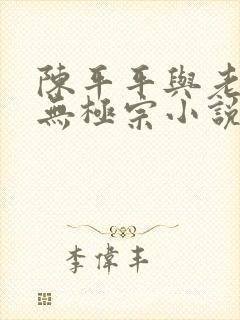 陳平平與老
無極宗小說
李偉丰